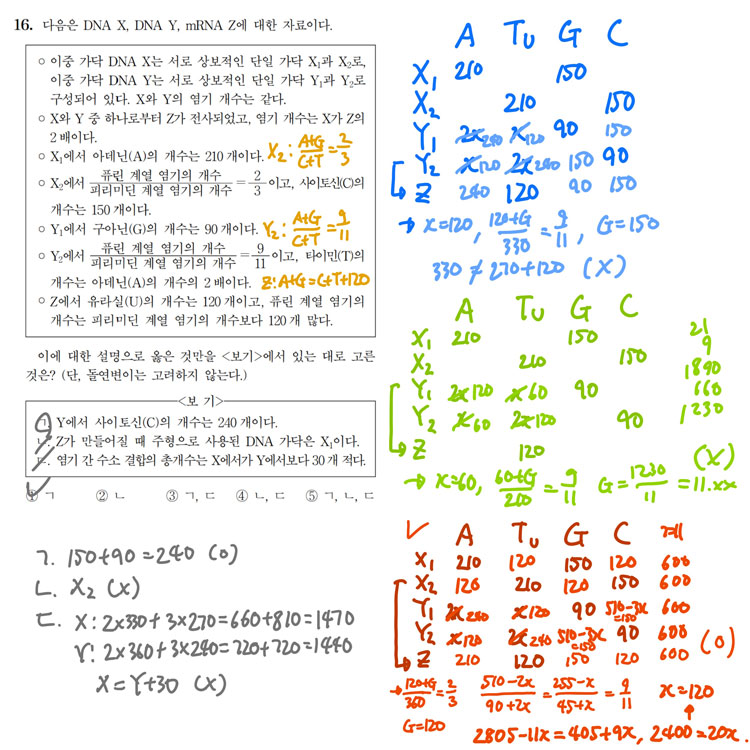 16. 다음은 DNA X, DNA Y, mRNA Z에 대한 자료이다.
○ 이중 가닥 DNA X는 서로 상보적인 단일 가닥 X₁과 X₂로,
이중 가닥 DNA Y는 서로 상보적인 단일 가닥 Y₁과 Y₂로
구성되어 있다. X와 Y의 염기 개수는 같다.
○ X와 Y 중 하나로부터 Z가 전사되었고, 염기 개수는 X가 Z의
2배이다.
○ X₁에서 아데닌(A)의 개수는 210개이다.
X₂: A+G/C+T = 2/3
○ X₂에서 퓨린 계열 염기의 개수/피리미딘 계열 염기의 개수 = 2/3 이고, 사이토신(C)의
개수는 150개이다.
○ Y₁에서 구아닌(G)의 개수는 90개이다.
Y₂: A+G/C+T = 9/11
○ Y₂에서 퓨린 계열 염기의 개수/피리미딘 계열 염기의 개수 = 9/11 이고, 타이민(T)의
개수는 아데닌(A)의 개수의 2배이다.
Z: A+G=C+T+120
○ Z에서 유라실(U)의 개수는 120개이고, 퓨린 계열 염기의
개수는 피리미딘 계열 염기의 개수보다 120개 많다.
이에 대한 설명으로 옳은 것만을 <보기>에서 있는 대로 고른
것은? (단, 돌연변이는 고려하지 않는다.)
<보 기>
ㄱ. Y에서 사이토신(C)의 개수는 240개이다.
ㄴ. Z가 만들어질 때 주형으로 사용된 DNA 가닥은 X₁이다.
ㄷ. 염기 간 수소 결합의 총개수는 X에서가 Y에서보다 30개 적다.
① ㄱ ② ㄴ ③ ㄱ, ㄷ ④ ㄴ, ㄷ ⑤ ㄱ, ㄴ, ㄷ
ㄱ. 150+90=240 (O)
ㄴ. X₂ (X)
ㄷ. X: 2×330+3×270=660+810=1470
Y: 2×360+3×240=720+720=1440
X=Y+30 (X)
A Tu G C
X₁ 210 150
X₂ 210 150
Y₁ 2x240 x120 90 150
Y₂ x120 2x240 150 90
Z 240 120 90 150
→ x=120, 120+G/330 = 9/11, G=150
330≠270+120 (X)
A Tu G C
X₁ 210 150
X₂ 210 150
Y₁ 2x120 x60 90
Y₂ x60 2x120 90
Z 120
21
9
1890
660
1230
(X)
→ x=60, 60+G/210 = 9/11 G=1230/11=11.xx
✓ A Tu G C 계
X₁ 210 120 150 120 600
X₂ 120 210 120 150 600
Y₁ 2x240 x120 90 510-3x=150 600
Y₂ x120 2x240 510-3x=150 90 600
Z 210 120 150 120 600
(O)
→ 120+G/360 = 2/3 510-2x/90+2x = 255-x/45+x = 9/11 x=120
G=120
2805-11x=405+9x, 2400=20x.